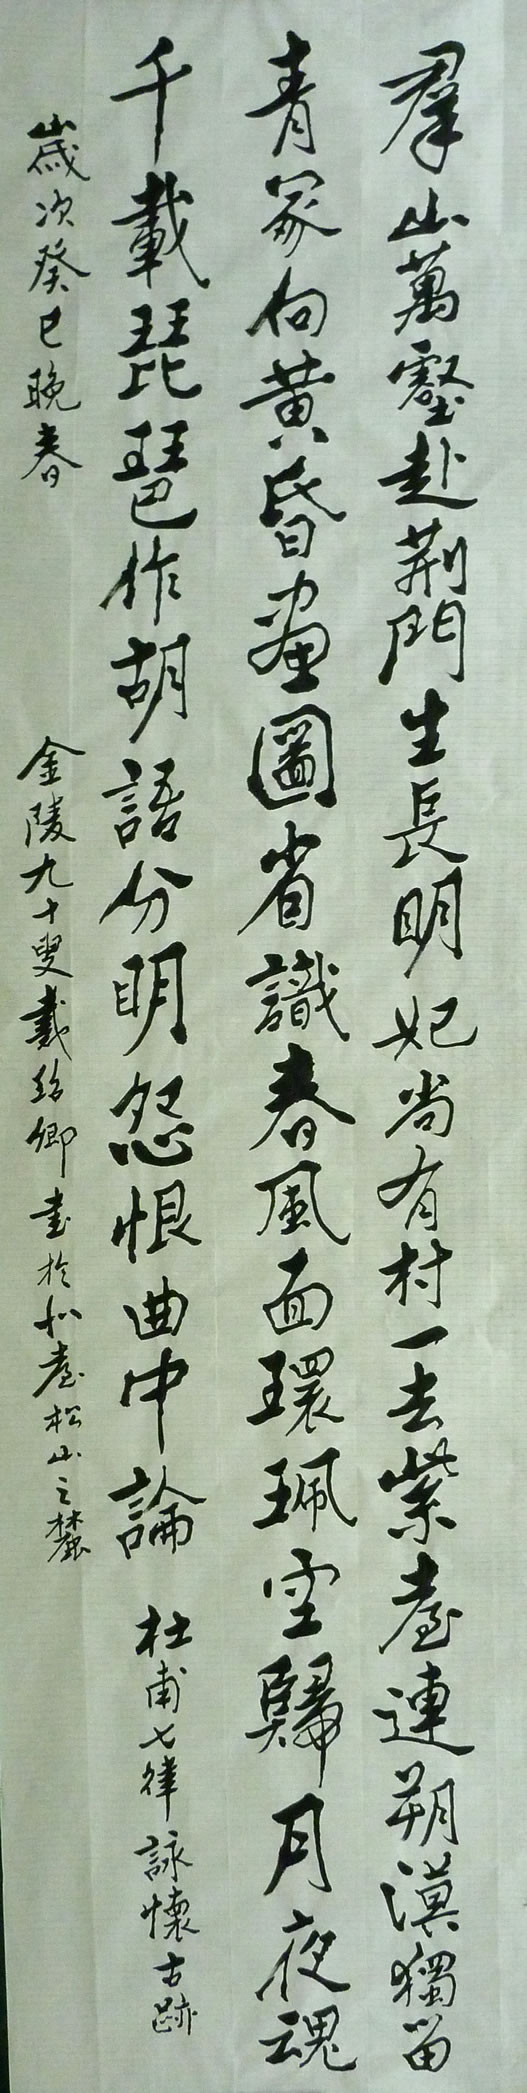 羣山萬壑赴荆門生長明妃尚有村一去紫臺連朔漠獨留
青冢向黄昏畫圖省識春風面環珮空歸月夜魂
千載琵琶作胡語分明怨恨曲中論 杜甫七律詠懷古跡
歲次癸巳晚春 金陵九十叟戴 卿書於 臺松山之麓